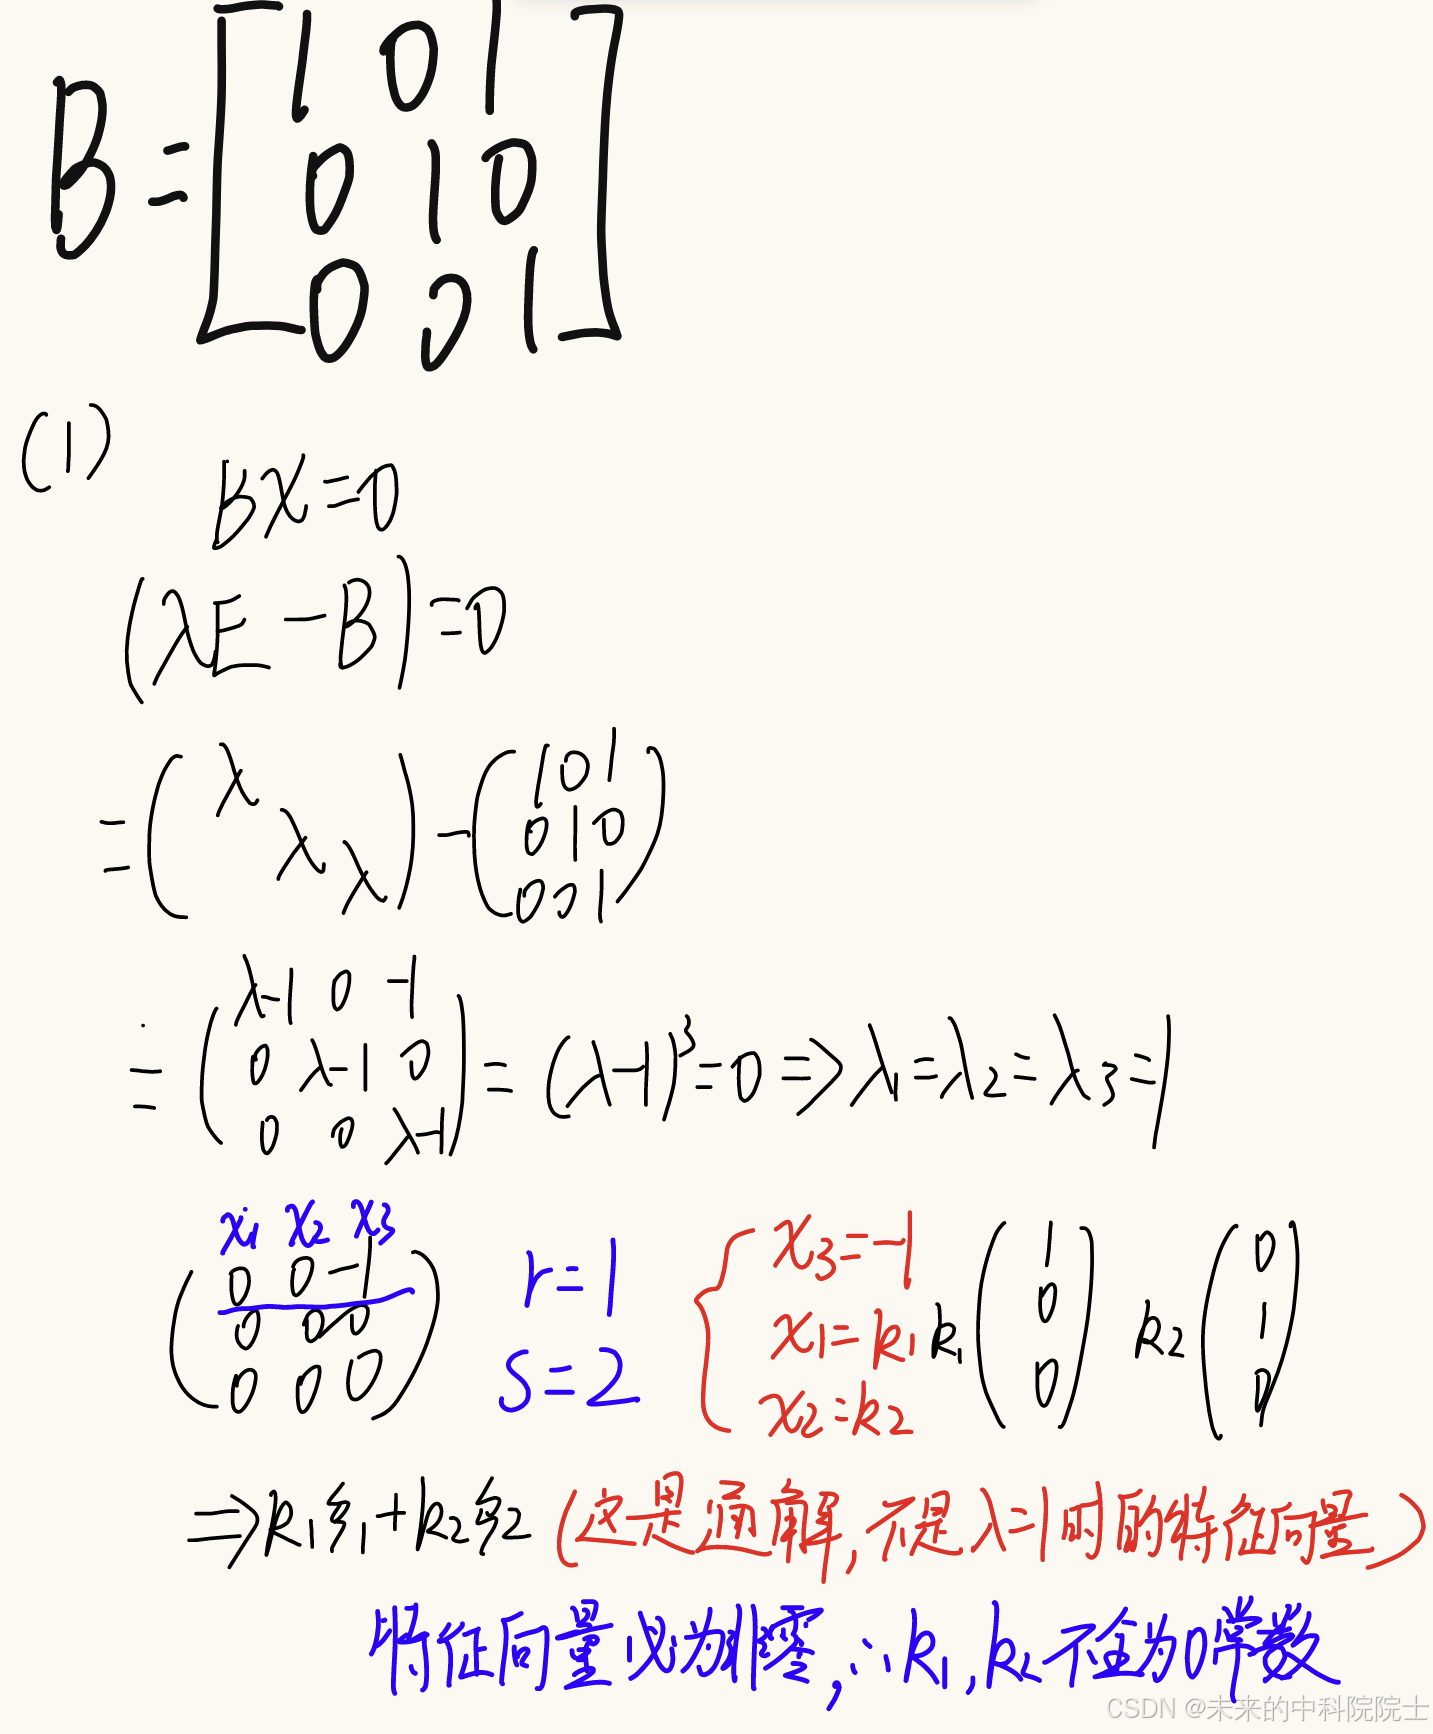 B = [ 1 0 1
0 1 0
0 0 1 ]
(1)
BX=0
(λE-B)=0
= ( λ λ λ ) - ( 1 0 1
0 1 0
0 0 1 )
= ( λ-1 0 -1
0 λ-1 0
0 0 λ-1 ) = (λ-1)³=0 ⇒ λ1=λ2=λ3=1
x1 x2 x3
( 0 0 -1
0 0 0
0 0 0 )
r=1
S=2
{ x3=-1
x1=k1
x2=k2
k1 ( 1
0
0 )
k2 ( 0
1
0 )
⇒ k1ξ1+k2ξ2 (这是通解,不是λ=1时的特征向量)
特征向量必为非零,∴k1,k2不全为0常数
CSDN @未来的中科院院士